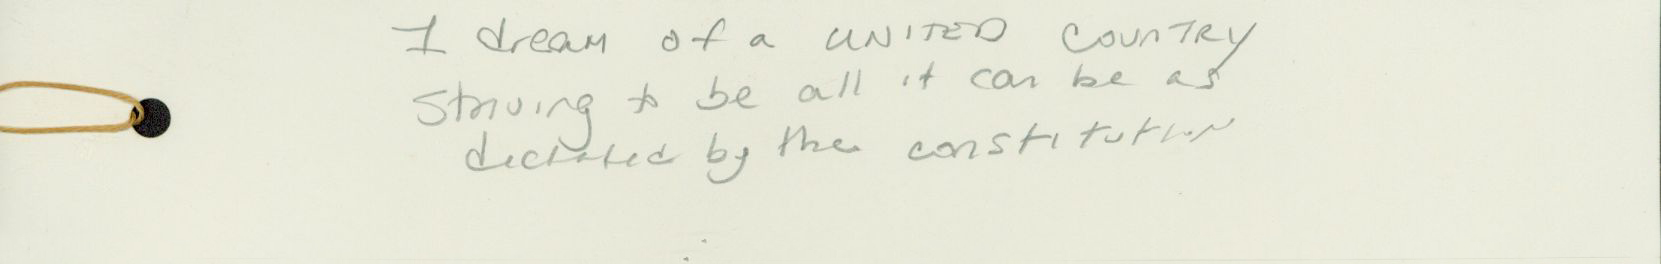 I dream of a UNITED COUNTRY
striving to be all it can be as
dictated by the constitution